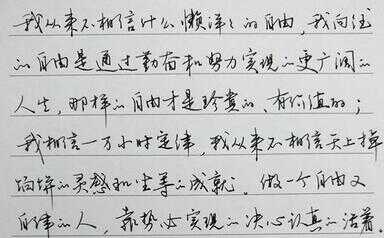 我从来不相信什么懒洋洋的自由，我向往
的自由是通过勤奋和努力实现的更广阔的
人生，那样的自由才是珍贵的、有价值的；
我相信一万小时定律，我从来不相信天上掉
馅饼的灵感和坐等的成就。做一个自由又
自律的人，靠势必实现的决心认真的活着。